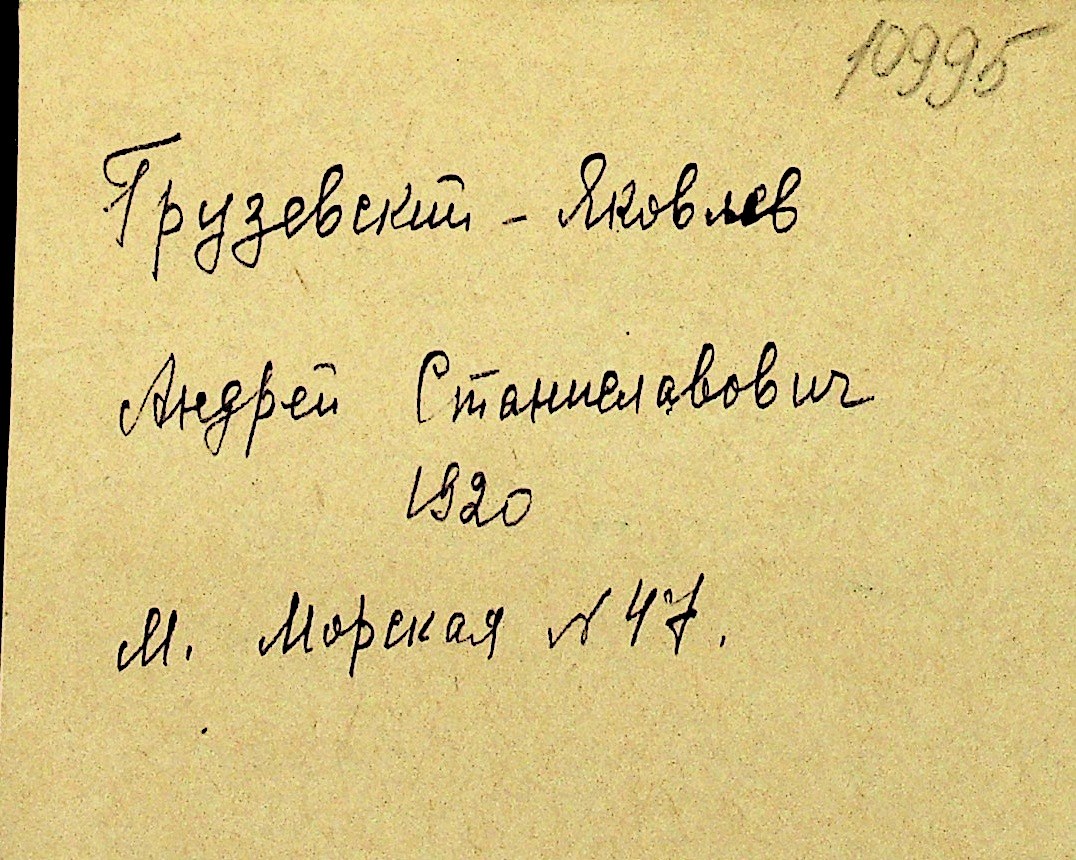 10995
Грузевский - Яковлев
Андрей Станиславович
1920
М. Морская № 47.